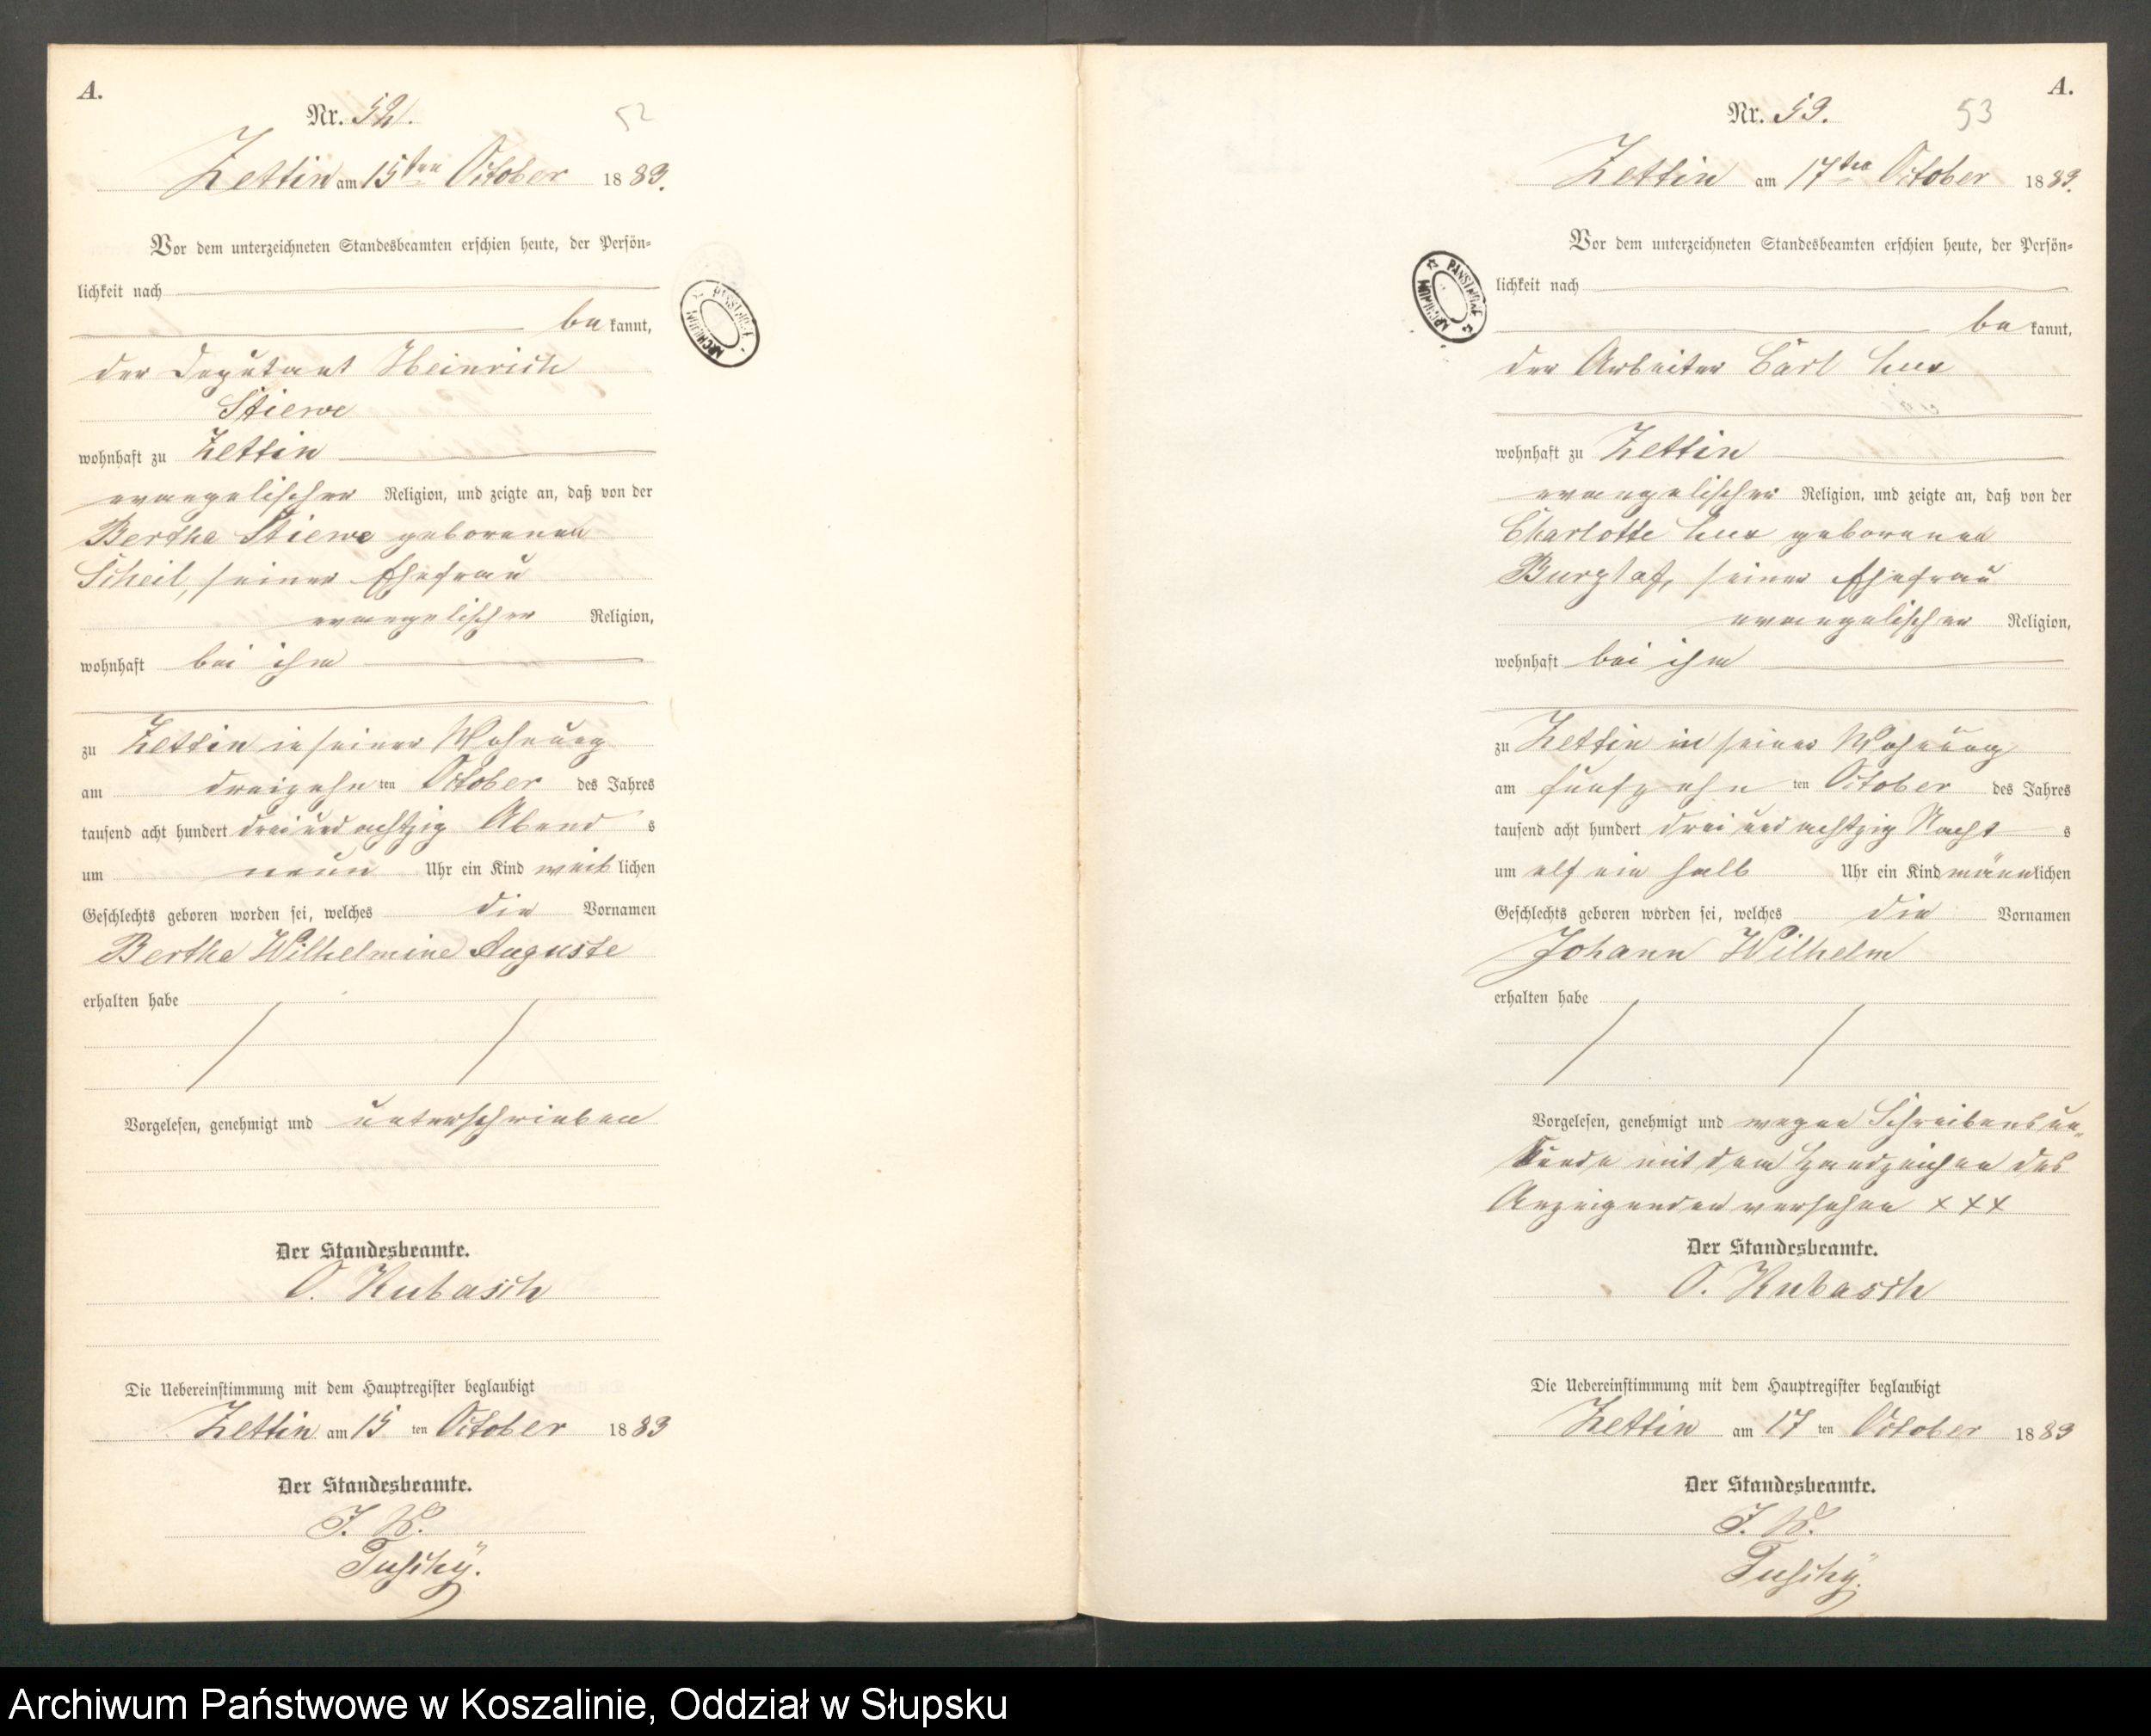 A.
Nr. 52.
52
Zettin am 15ten October 1883.
Vor dem unterzeichneten Standesbeamten erschien heute, der Persön-
lichkeit nach
bekannt,
der Deputant Heinrich
Stiewe
wohnhaft zu Zettin
evangelischer Religion, und zeigte an, daß von der
Bertha Stiewe geborenen
Scheil, seiner Ehefrau
evangelischer Religion,
wohnhaft bei ihm
zu Zettin in seiner Wohnung
am dreizehnten October des Jahres
tausend acht hundert dreiundachtzig Abends
um neun Uhr ein Kind weiblichen
Geschlechts geboren worden sei, welches die Vornamen
Bertha Wilhelmine Auguste
erhalten habe
Vorgelesen, genehmigt und unterschrieben
Der Standesbeamte.
O. Kubasch
Die Uebereinstimmung mit dem Hauptregister beglaubigt
Zettin am 15 ten October 1883
Der Standesbeamte.
J. V.
ARCHIWUM PAŃSTWOWE
A.
Nr. 53.
53
Zettin am 17ten October 1883.
Vor dem unterzeichneten Standesbeamten erschien heute, der Persön-
lichkeit nach
bekannt,
der Arbeiter Carl Lux
wohnhaft zu Zettin
evangelischer Religion, und zeigte an, daß von der
Charlotte Lux geborenen
seiner Ehefrau
evangelischer Religion,
wohnhaft bei ihm
zu Zettin in seiner Wohnung
am fünfzehnten October des Jahres
tausend acht hundert dreiundachtzig Nachts
um elf ein halb Uhr ein Kind männlichen
Geschlechts geboren worden sei, welches die Vornamen
Johann Wilhelm
erhalten habe
Vorgelesen, genehmigt und wegen Schreibensun-
kunde mit dem Handzeichen des
Anzeigenden versehen + + +
Der Standesbeamte.
O. Kubasch
Die Uebereinstimmung mit dem Hauptregister beglaubigt
Zettin am 17 ten October 1883
Der Standesbeamte.
J. V.
ARCHIWUM PAŃSTWOWE
Archiwum Państwowe w Koszalinie, Oddział w Słupsku